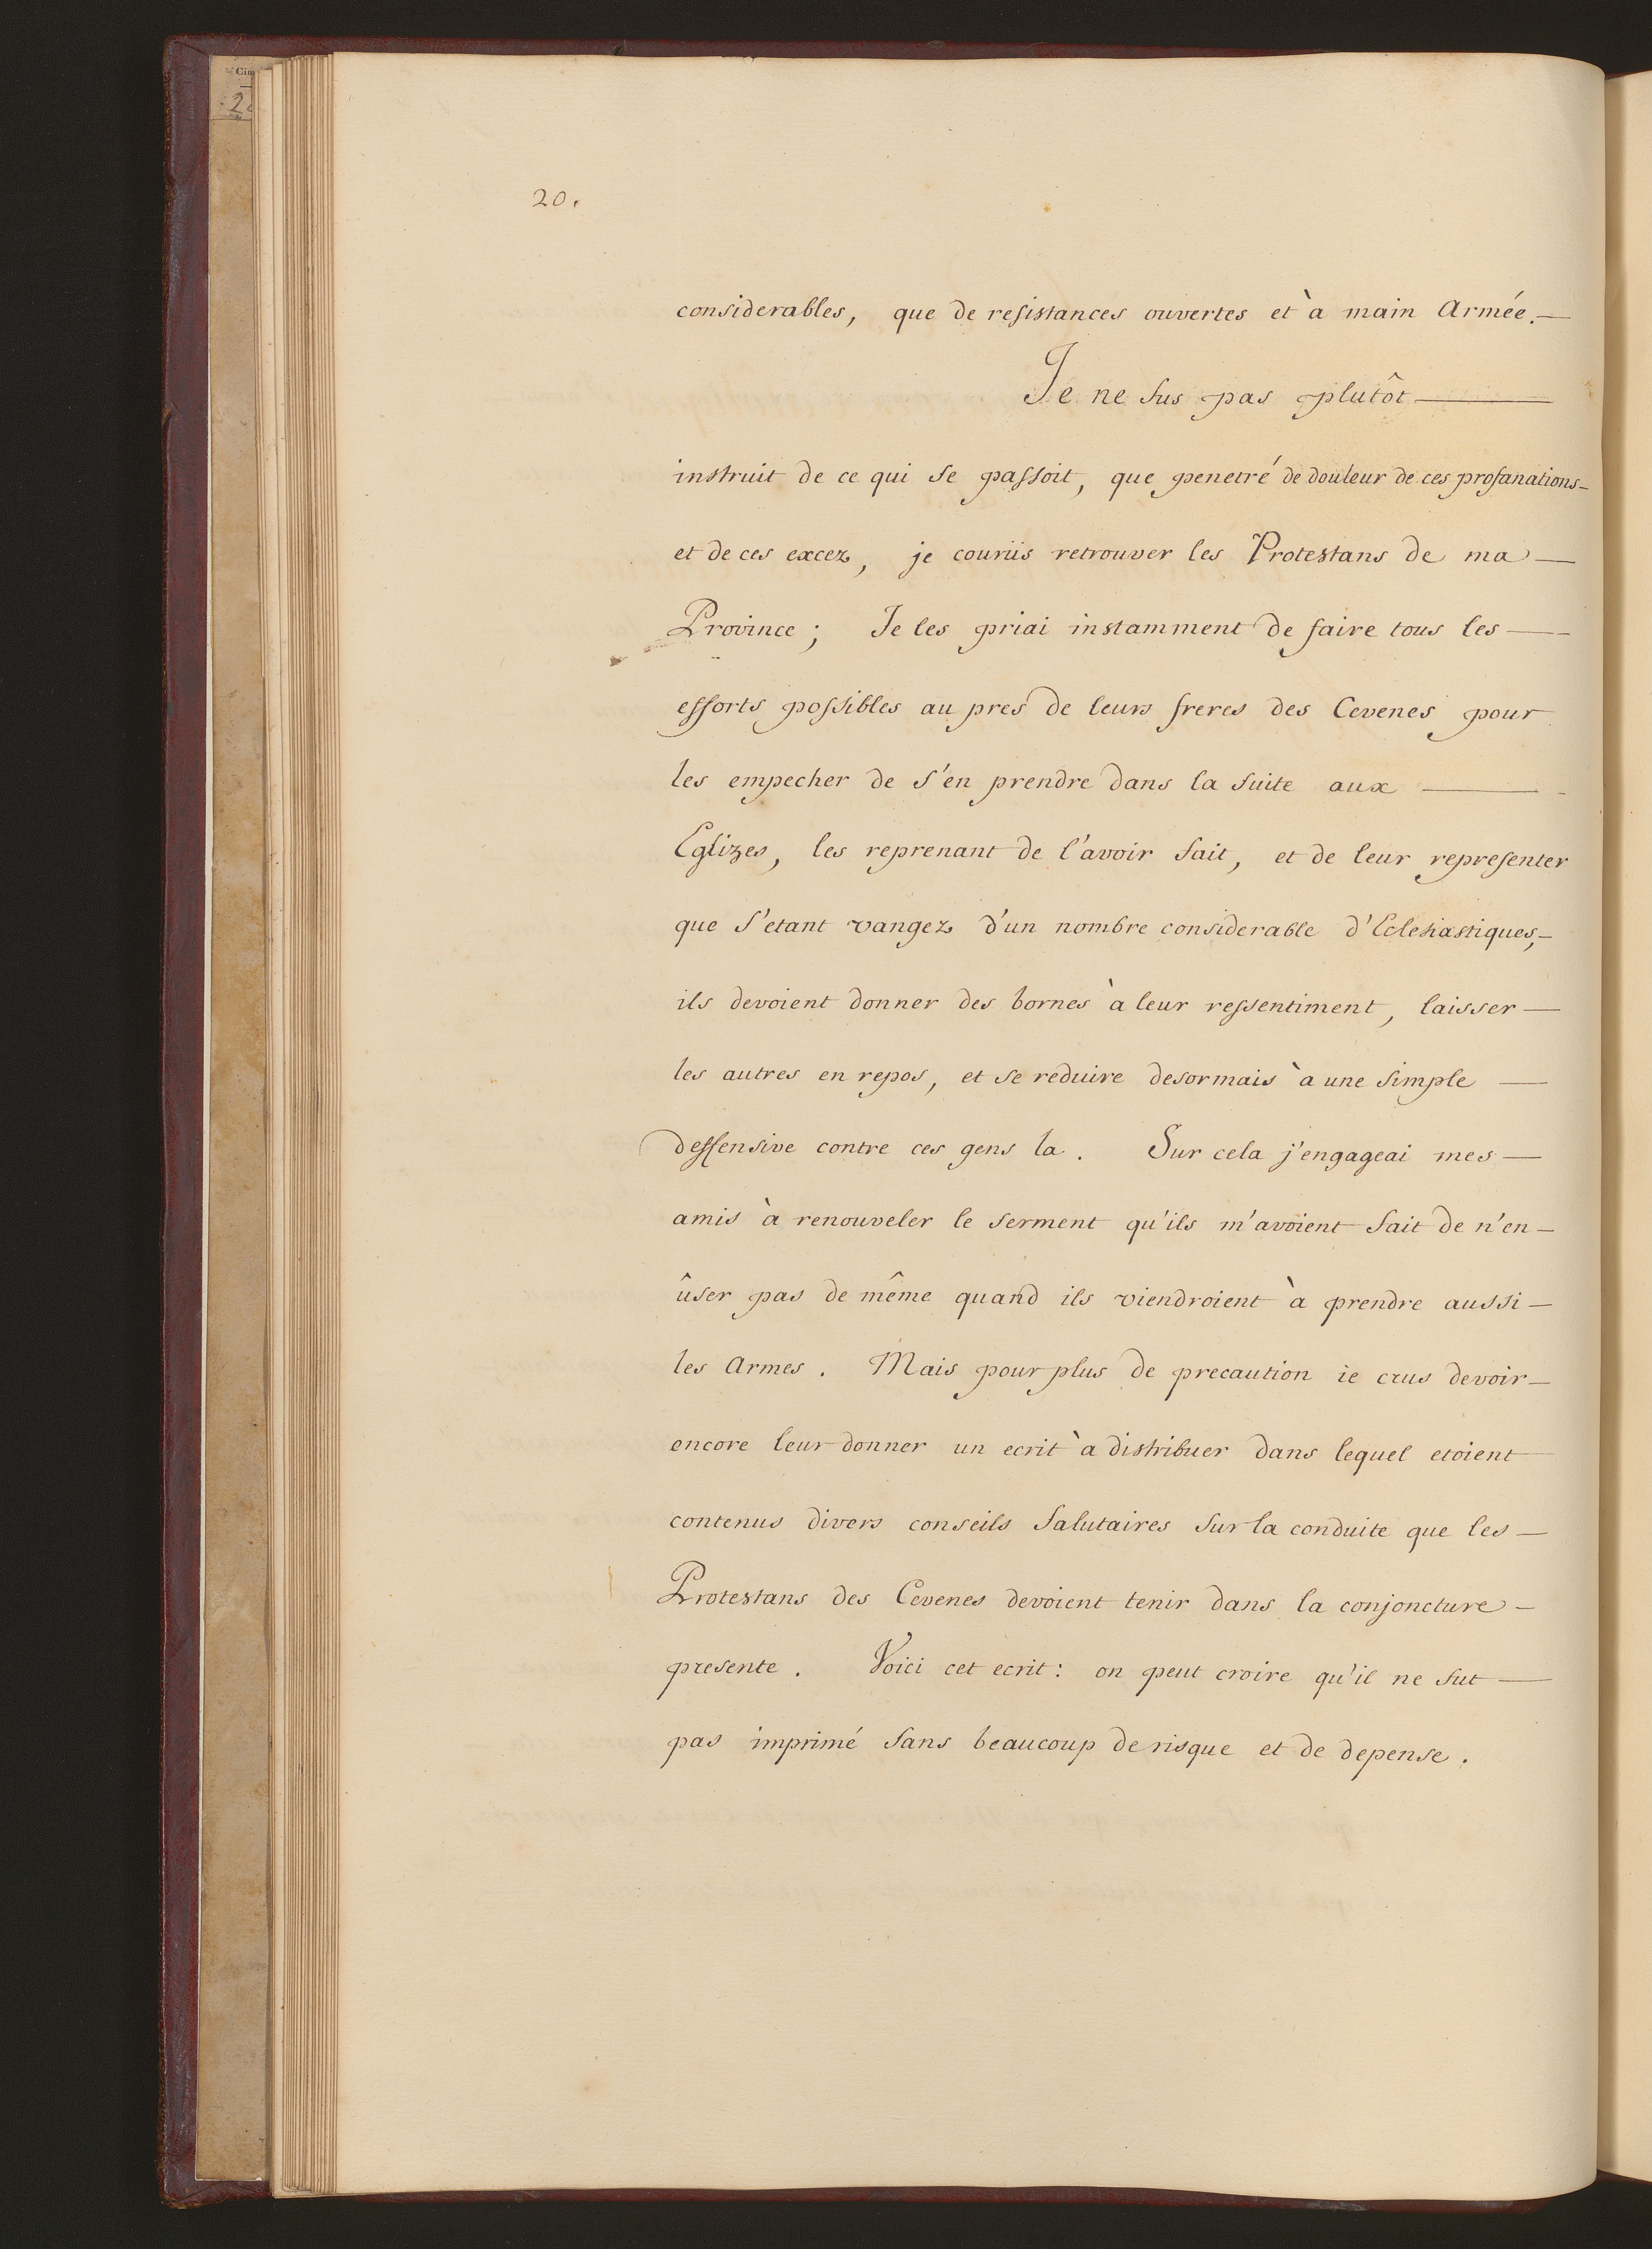 20.
considerables, que de resistances ouvertes et à main Armée.—
Je ne fus pas plutôt —
instruit de ce qui se passoit, que penetré de douleur de ces profanations—
et de ces excez, je courus retrouver les Protestans de ma —
Province ; Je les priai instamment de faire tous les —
efforts possibles au pres de leurs freres des Cevenes pour
les empecher de s'en prendre dans la suite aux —
Eglizes, les reprenant de l'avoir fait, et de leur representer
que s'etant vangez d'un nombre considerable d'Eclesiastiques,—
ils devoient donner des bornes à leur ressentiment, laisser —
les autres en repos, et se reduire desormais à une simple —
deffensive contre ces gens la. Sur cela j'engageai mes —
amis à renouveler le serment qu'ils m'avoient fait de n'en —
ûser pas de même quand ils viendroient à prendre aussi —
les Armes. Mais pour plus de precaution ie crus devoir —
encore leur donner un ecrit à distribuer dans lequel etoient
contenus divers conseils salutaires sur la conduite que les —
Protestans des Cevenes devoient tenir dans la conjoncture —
presente. Voici cet ecrit : on peut croire qu'il ne fut —
pas imprimé sans beaucoup de risque et de depense.